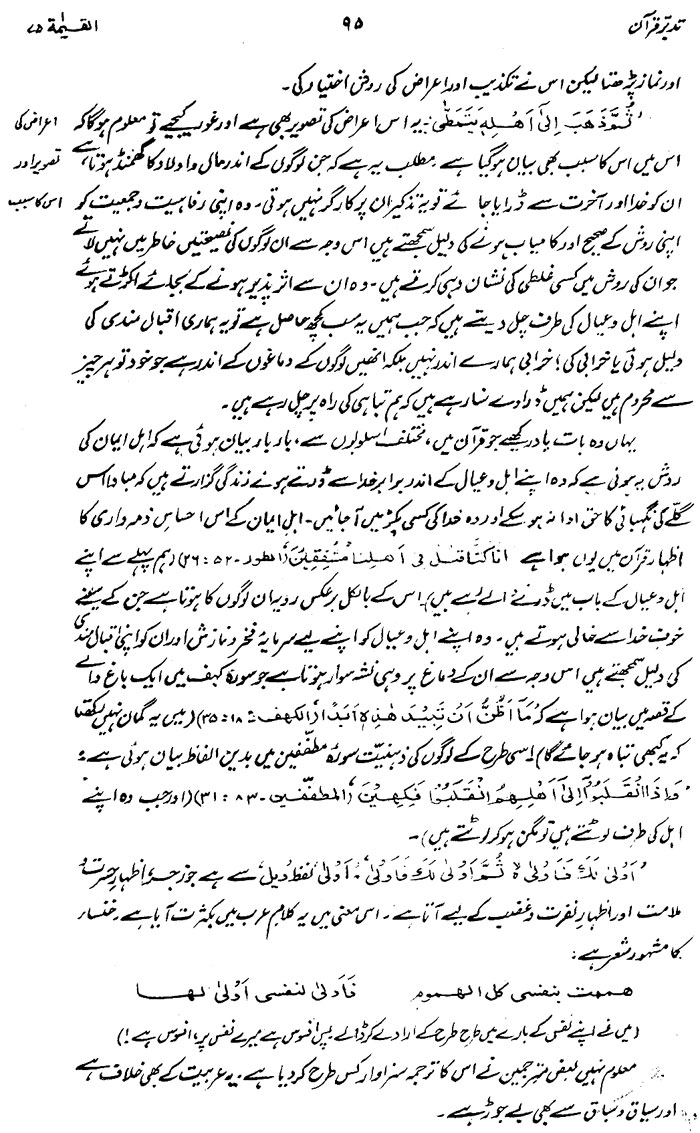 تدبرِ قرآن ۹۵ القیٰمۃ ۷۵
اور نماز پڑھتا لیکن اس نے تکذیب اور اعراض کی روش اختیار کی۔
’ثُمَّ ذَهَبَ اِلٰٓى اَهْلِهٖ يَتَمَطّٰى‘ یہ اس اعراض کی تصویر بھی ہے اور غور کیجیے تو معلوم ہوگا کہ اعراض کی
اس میں اس کا سبب بھی بیان ہوگیا ہے۔ مطلب یہ ہے کہ جن لوگوں کے اندر مال و اولاد کا گھمنڈ ہوتا ہے تصویر اور
ان کو خدا اور آخرت سے ڈرایا جائے تو یہ تذکیر ان پر کارگر نہیں ہوتی۔ وہ اپنی رفاہیت و جمعیت کو اس کا سبب
اپنی روش کے صحیح اور کامیاب ہونے کی دلیل سمجھتے ہیں اس وجہ سے ان لوگوں کی نصیحتیں خاطر میں نہیں لاتے
جو ان کی روش میں کسی غلطی کی نشان دہی کرتے ہیں۔ وہ ان سے اثر پذیر ہونے کے بجائے اکڑتے ہوئے
اپنے اہل و عیال کی طرف چل دیتے ہیں کہ جب ہمیں یہ سب کچھ حاصل ہے تو یہ ہماری اقبال مندی کی
دلیل ہوئی یا خرابی کی! خرابی ہمارے اندر نہیں بلکہ انھیں لوگوں کے دماغوں کے اندر ہے جو خود تو ہر چیز
سے محروم ہیں لیکن ہمیں ڈراوے سنا رہے ہیں کہ ہم تباہی کی راہ پر چل رہے ہیں۔
یہاں وہ بات یاد رکھیے جو قرآن میں، مختلف اسلوبوں سے، بار بار بیان ہوئی ہے کہ اہل ایمان کی
روش یہ ہوتی ہے کہ وہ اپنے اہل و عیال کے اندر برابر خدا سے ڈرتے ہوئے زندگی گزارتے ہیں کہ مبادا اس
گلّے کی نگہبانی کا حق ادا نہ ہو سکے اور وہ خدا کی کسی پکڑ میں آ جائیں۔ اہلِ ایمان کے اس احساسِ ذمہ داری کا
اظہار قرآن میں یوں ہوا ہے ’اِنَّا كُنَّا قَبْلُ فِىْٓ اَهْلِنَا مُشْفِقِيْنَ‘ (الطور۔ ۵۲ : ۲۶) (ہم پہلے سے اپنے
اہل و عیال کے باب میں ڈرنے والے رہے ہیں)۔ اس کے بالکل برعکس رویہ ان لوگوں کا ہوتا ہے جن کے سینے
خوفِ خدا سے خالی ہوتے ہیں۔ وہ اپنے اہل و عیال کو اپنے لیے سرمایۂ فخر و نازش اور ان کو اپنی اقبال مندی
کی دلیل سمجھتے ہیں اس وجہ سے ان کے دماغ پر وہی نشہ سوار ہوتا ہے جو سورۂ کہف میں ایک باغ والے
کے قصہ میں بیان ہوا ہے کہ ’مَآ اَظُنُّ اَنْ تَبِيْدَ هٰذِهٖٓ اَبَدًا‘ (الکھف۔ ۱۸ : ۳۵) (میں یہ گمان نہیں رکھتا
کہ یہ کبھی تباہ ہو جائے گا)۔ اسی طرح کے لوگوں کی ذہنیت سورۂ مطففین میں بدیں الفاظ بیان ہوئی ہے:
’وَاِذَا انْقَلَبُوْٓا اِلٰٓى اَهْلِهِمُ انْقَلَبُوْا فَكِهِيْنَ‘ (المطففین۔ ۸۳ : ۳۱) (اور جب وہ اپنے
اہل کی طرف لوٹتے ہیں تو مگن ہو کر لوٹتے ہیں)۔
’اَوْلٰى لَكَ فَاَوْلٰى ۙ ثُمَّ اَوْلٰى لَكَ فَاَوْلٰى‘۔ ’اَوْلٰى‘ لفظ ’ویل‘ سے ہے جو زجر، اظہارِ حسرت،
ملامت اور اظہارِ نفرت و غضب کے لیے آتا ہے۔ اس معنی میں یہ کلامِ عرب میں بکثرت آیا ہے۔ خنساء
کا مشہور شعر ہے:
هممت بنفسى كل الهموم فَاَولىٰ لنفسى اَوْلىٰ لها
(میں نے اپنے نفس کے بارے میں طرح طرح کے ارادے کر ڈالے پس افسوس ہے میرے نفس پر، افسوس ہے!)
معلوم نہیں بعض مترجمین نے اس کا ترجمہ سزاوار کس طرح کر دیا ہے۔ یہ عربیت کے بھی خلاف ہے
اور سیاق و سباق سے بھی بے جوڑ ہے۔